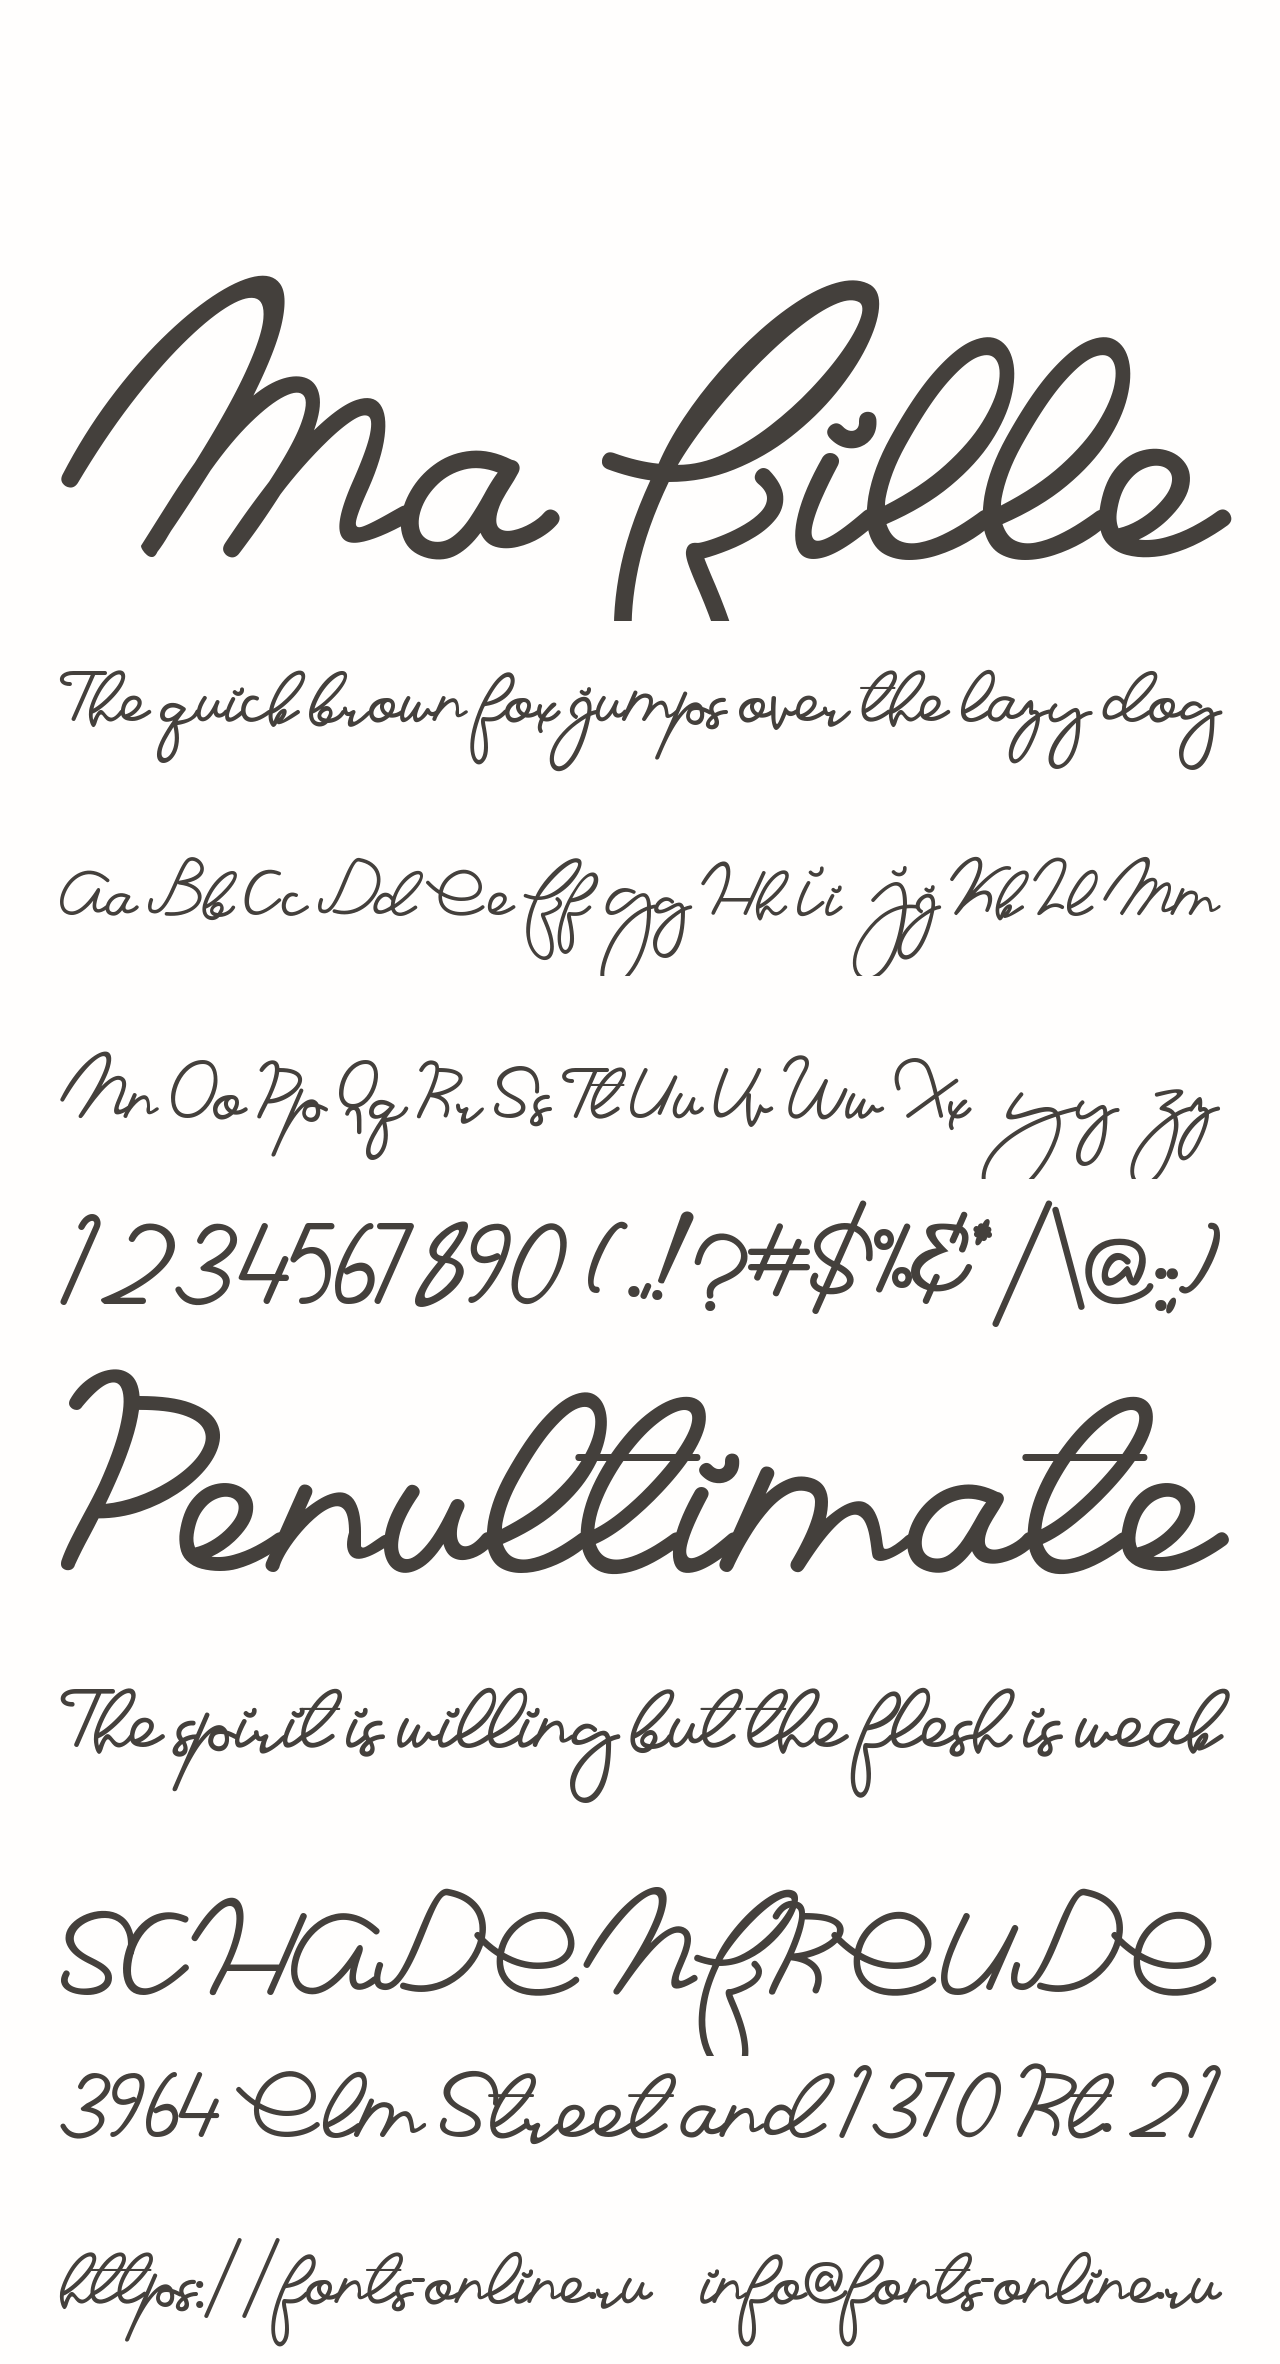 Ma fille
The quick brown fox jumps over the lazy dog
Aa Bb Cc Dd Ee Ff Gg Hh Ii Jj Kk Ll Mm
Nn Oo Pp Qq Rr Ss Tt Uu Vv Ww Xx Yy Zz
1234567890 (.,!?#$%&* /\@:;)
Penultimate
The spirit is willing but the flesh is weak
SCHADENFREUDE
3964 Elm Street and 1370 Rt. 21
https://fonts-online.ru info@fonts-online.ru